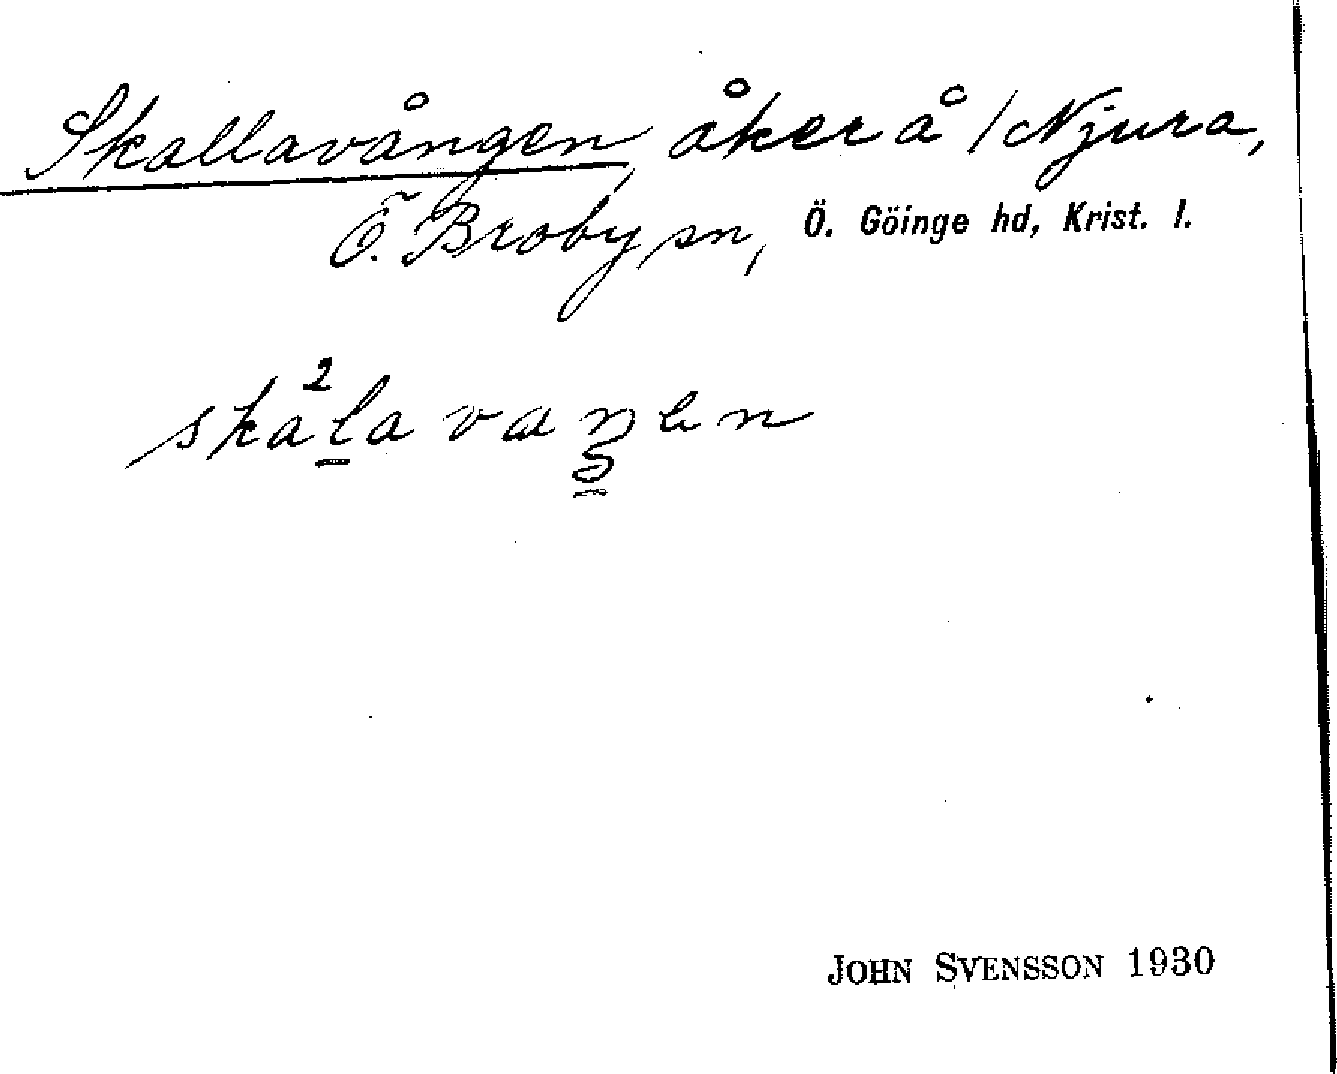 Skallavången, åker å 1 Njura,
Ö. Broby sn, Ö. Göinge hd, Krist. l.
ska²la vaŋen
JOHN SVENSSON 1930